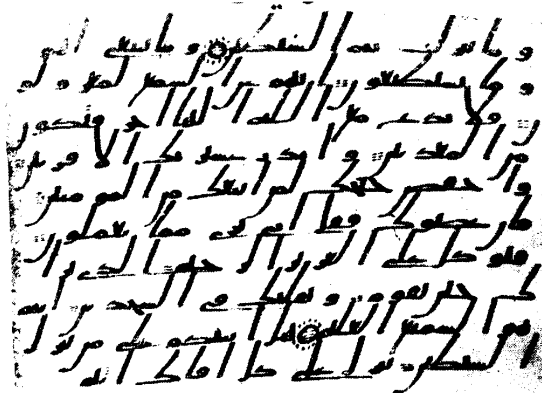 و ما تنزلت به الشيطين و ما ينبغي لهم
و ما يستطيعون انهم عن السمع لمعزولو
ن فلا تدع مع الله الها اخر فتكون
من المعذبين و انذر عشيرتك الاقربين
واخفض جناحك لمن اتبعك من المومنين
فان عصوك فقل اني بري مما تعملون
فتوكل على العزيز الرحيم الذي يرا
ك حين تقوم و تقلبك في السجدين انه
هو السميع العليم هل انبيكم على من تنزل
الشيطين تنزل على كل افاك اثيم